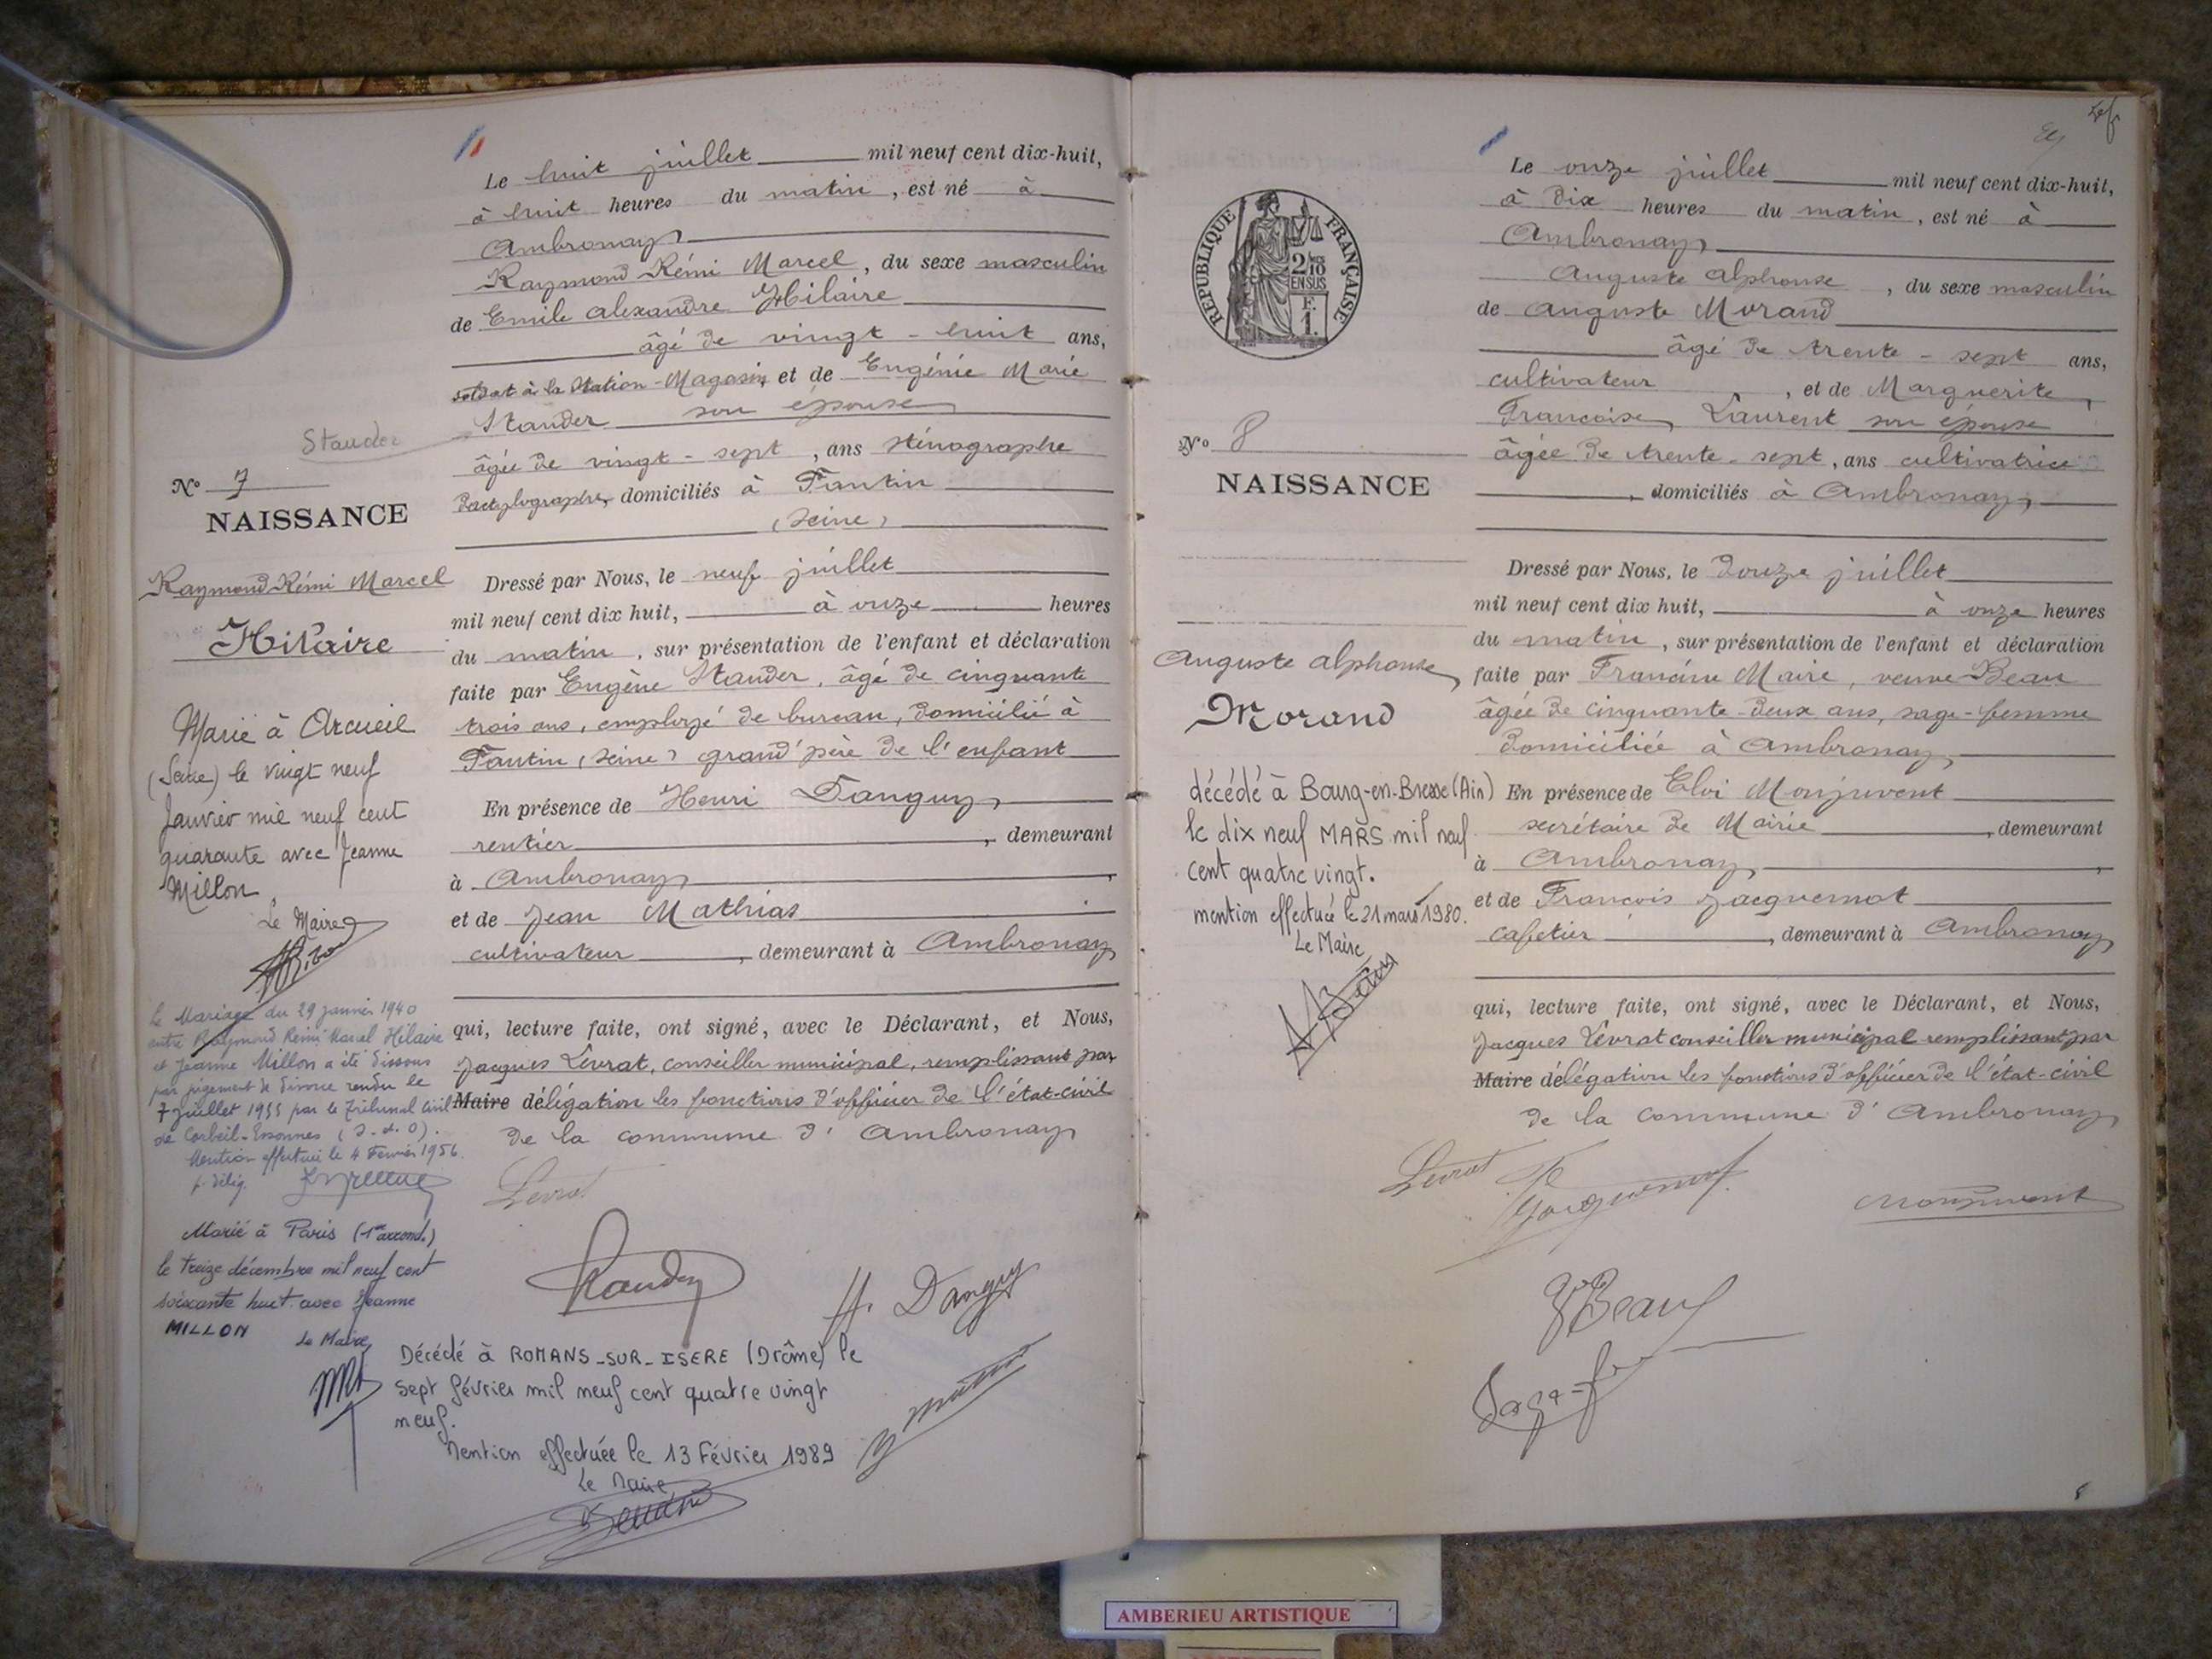 Le huit juillet mil neuf cent dix-huit,
à huit heures du matin, est né à
Ambronay
Raymond Rémi Marcel, du sexe masculin
de Emile Alexandre Hilaire
âgé de vingt-huit ans,
soldat à la Station-Magasin, et de Eugénie Marie
Stauder son épouse
âgée de vingt-sept, ans sténographe
dactylographe, domiciliés à Pantin
(Seine)
Stauder
No 7
NAISSANCE
Raymond Rémi Marcel
Hilaire
Marié à Arcueil
(Seine) le vingt neuf
Janvier mil neuf cent
quarante avec Jeanne
Millon
Le Maire
Le Mariage du 29 janvier 1940
entre Raymond Rémi Marcel Hilaire
et Jeanne Millon a été dissous
par jugement de divorce rendu le
7 Juillet 1955 par le Tribunal civil
de Corbeil-Essonnes (S.&.O).
Mention effectuée le 4 Février 1956.
p. délég.
Marié à Paris (1er arrond.)
le treize décembre mil neuf cent
soixante huit avec Jeanne
MILLON
Le Maire
Dressé par Nous, le neuf juillet
mil neuf cent dix huit, à onze heures
du matin, sur présentation de l'enfant et déclaration
faite par Eugène Stauder, âgé de cinquante
trois ans, employé de bureau, domicilié à
Pantin (Seine) grand'père de l'enfant
En présence de Henri Danguy,
rentier, demeurant
à Ambronay,
et de Jean Mathias
cultivateur, demeurant à Ambronay
qui, lecture faite, ont signé, avec le Déclarant, et Nous,
Jacques Levrat, conseiller municipal, remplissant par
Maire délégation les fonctions d'officier de l'état-civil
de la commune d'Ambronay
Levrat
Stauder
H. Danguy
Décédé à ROMANS-SUR-ISERE (Drôme) le
sept février mil neuf cent quatre vingt
neuf.
Mention effectuée le 13 Février 1989
Le Maire
REPUBLIQUE FRANÇAISE
2/10 EN SUS
F. 1.
Le onze juillet mil neuf cent dix-huit,
à dix heures du matin, est né à
Ambronay
Auguste Alphonse, du sexe masculin
de Auguste Morand
âgé de trente-sept ans,
cultivateur, et de Marguerite
Françoise Laurent son épouse
âgée de trente-sept, ans cultivatrice
, domiciliés à Ambronay,
No 8
NAISSANCE
Auguste Alphonse
Morand
décédé à Bourg-en-Bresse (Ain)
le dix neuf MARS mil neuf
cent quatre vingt.
mention effectuée le 21 mars 1980.
Le Maire
Dressé par Nous, le douze juillet
mil neuf cent dix huit, à onze heures
du matin, sur présentation de l'enfant et déclaration
faite par Francine Maire, veuve Beau
âgée de cinquante-deux ans, sage-femme
domiciliée à Ambronay
En présence de Eloi Monjuvent
secrétaire de Mairie, demeurant
à Ambronay,
et de François Jacquemot
cafetier, demeurant à Ambronay
qui, lecture faite, ont signé, avec le Déclarant, et Nous,
Jacques Levrat conseiller municipal remplissant par
Maire délégation les fonctions d'officier de l'état-civil
de la commune d'Ambronay
Levrat
Jacquemot
Monjuvent
Beau
Sage-f
AMBERIEU ARTISTIQUE